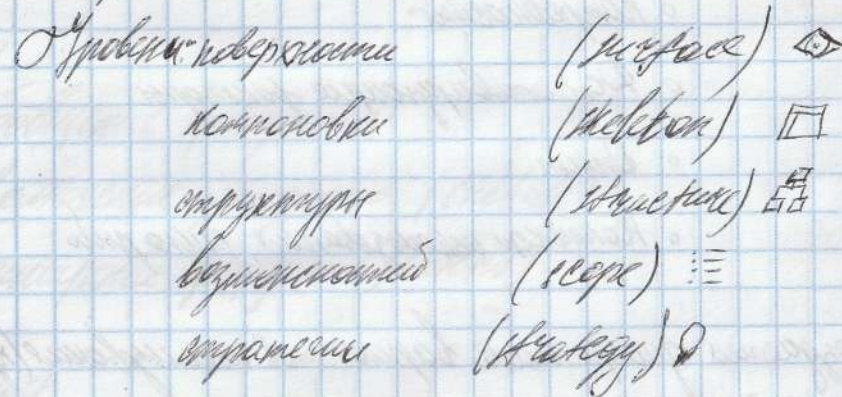 Уровень поверхности (surface)
компоновки (skeleton)
структуры (structure)
возможностей (scope)
стратегии (strategy)